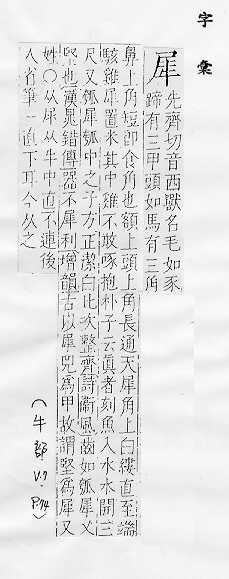 字彙
犀 先齊切音西獸名毛如豕
蹄有三甲頭如馬有三角
鼻上角短即食角也額上頭上角長通天犀角上白縷直至端
駭雞犀置米其中雞不敢啄抱朴子云眞者刻魚入水水開三
尺又瓠犀瓠中之子方正潔白比次整齊詩衞風齒如瓠犀又
堅也漢鼂錯傳器不犀利增韻古以犀兕爲甲故謂堅爲犀又
姓○从尾从牛中直不連後
人省筆一直下耳今从之
(牛部 V.7 P.74)